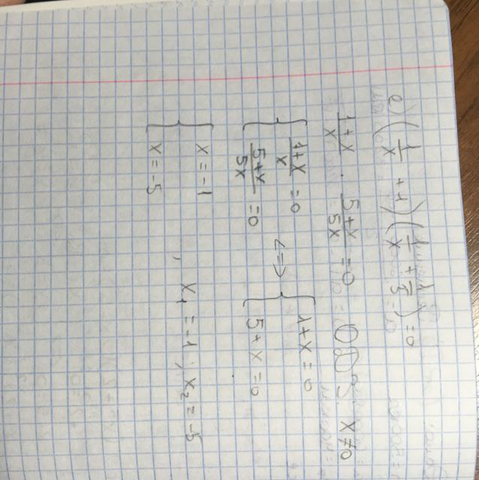 e) (1/x + 1)(1/x + 1/5) = 0
(1+x)/x · (5+x)/5x = 0 ОДЗ x≠0
{ (1+x)/x = 0 <=> { 1+x = 0
{ (5+x)/5x = 0 { 5+x = 0
{ x = -1
{ x = -5 , x₁ = -1, x₂ = -5